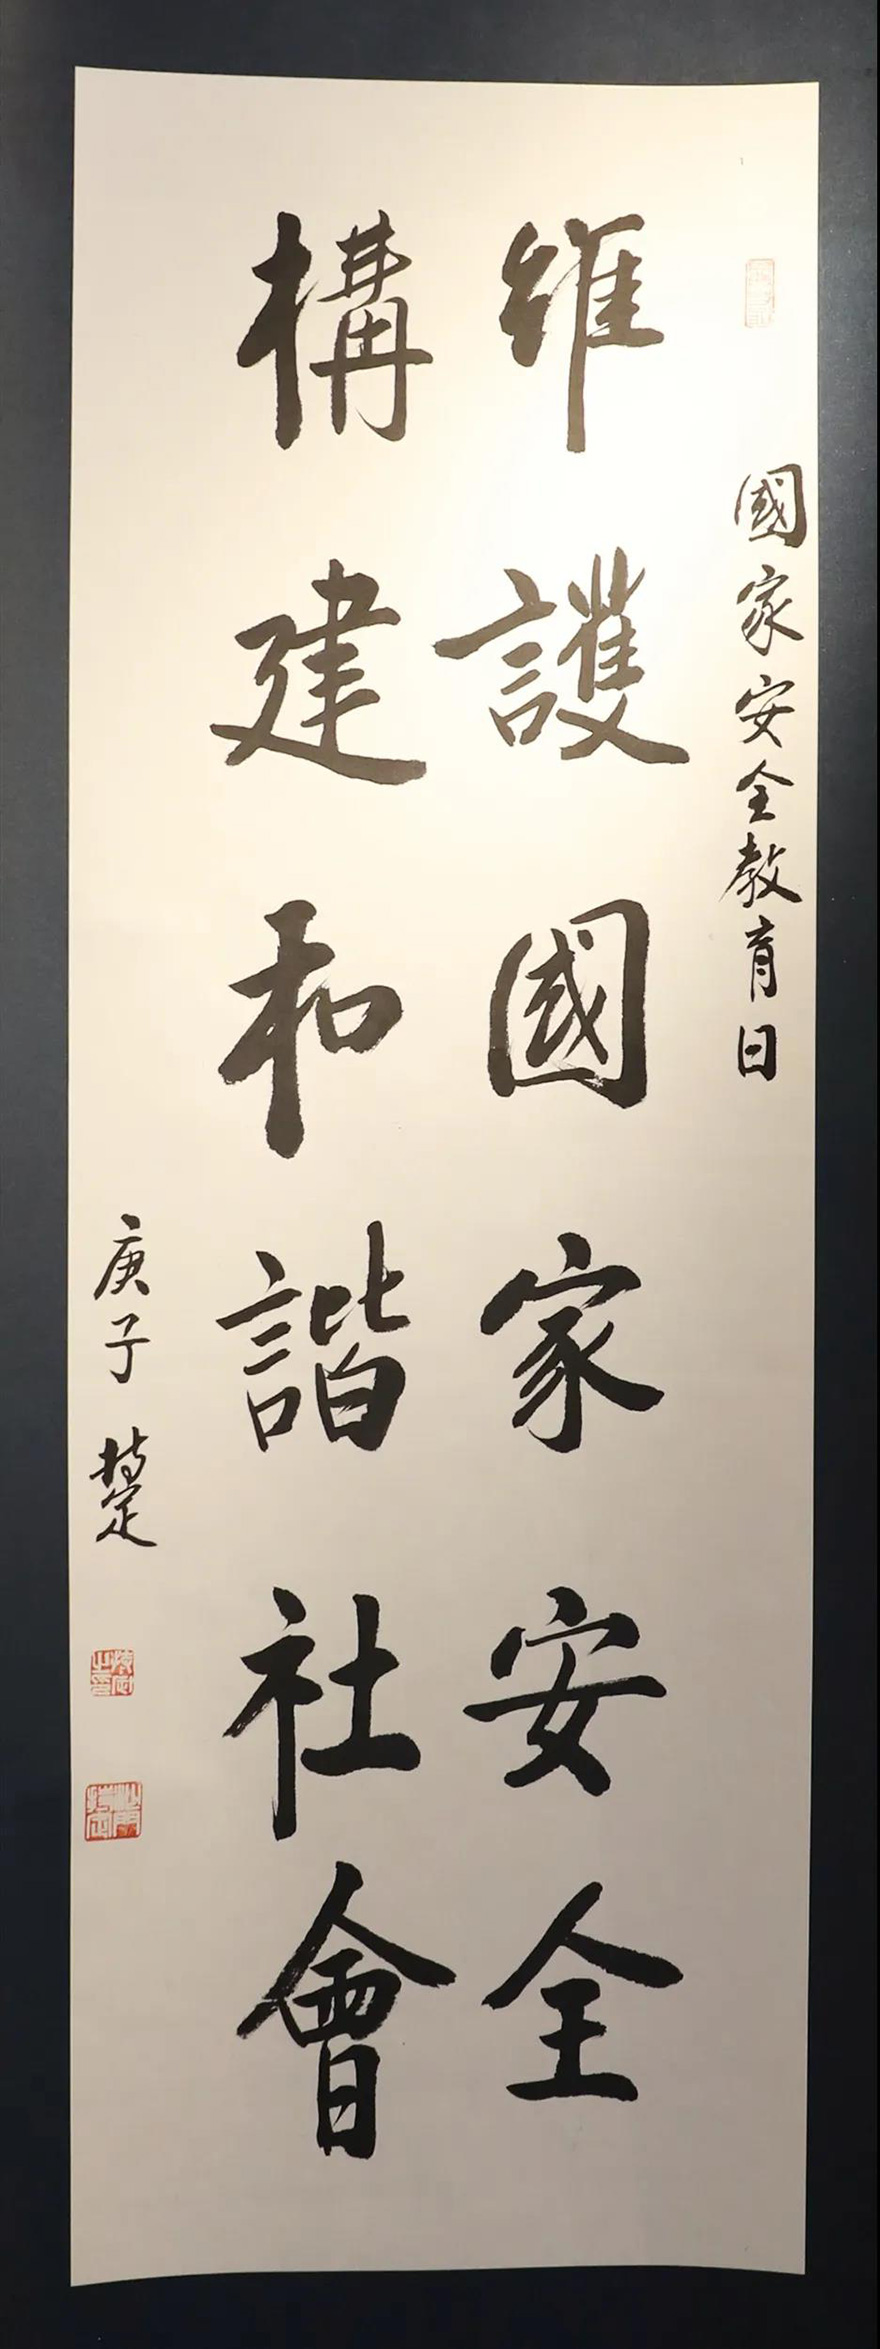 國家安全教育日
維護國家安全
構建和諧社會
庚子 楚定